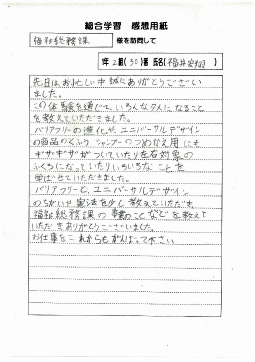 総合学習 感想用紙
福祉総務課 様を訪問して
年2組(30)番 氏名(福井
先日はお忙しい中誠にありがとうござい
ました。
この体験を通じて、いろんなためになること
を教えていただきました。
バリアフリーの進化が、ユニバーサルデザイン
の商品のくふう シャンプーのつめかえ用にも
ギザギザがついていたり左右対象の
ふくろになっていたりいろいろなことを
学ばせていただきました。
バリアフリーと、ユニバーサルデザイン
のちがいや憲法を少し教えていただき、
福祉総務課の事のことなどを教えて
いただきありがとうございました。
お仕事をこれからもがんばって下さい